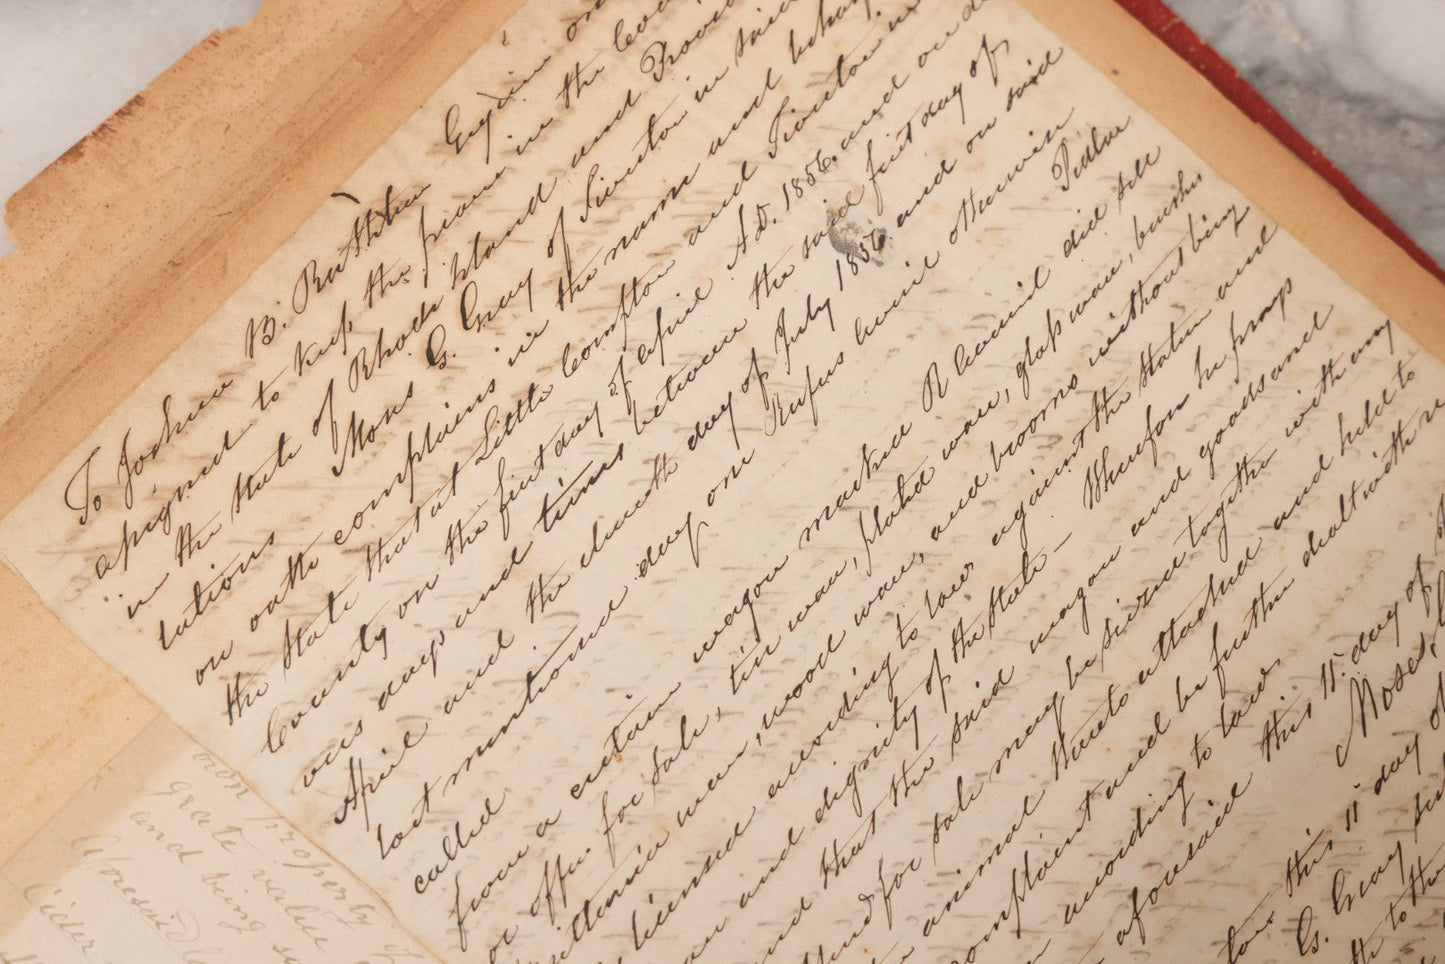 To Joshua B. Rathbun Esquire one
assigned to keep the peace in the County
in the State of Rhode Island and Provid
tations Moses G. Gray of Tiverton in said
on oath complains in the name and behalf
the State that at Little Compton and Tiverton in
County on the first day of April A.D. 1856, and on di
vers days and times between the said first day of
April and the eleventh day of July 1856 and on said
last mentioned day one Rufus being otherwise
called Pedlar
from a certain wagon marked R did sell
or offer for sale, tin ware, plated ware, glass ware, brushes
Brittannia ware, wood ware, and brooms without being
licensed according to law against the Statute and
and dignity of the State— Wherefore he prays
and that the said wagon and goods and
for sale may be seized together with any
animal thereto attached and held to
complaint and be further dealt with
according to law
aforesaid this 11 day of
Moses
this 11 day of
G. Gray
to the
own property
grate value
and being
aforesaid
Cider